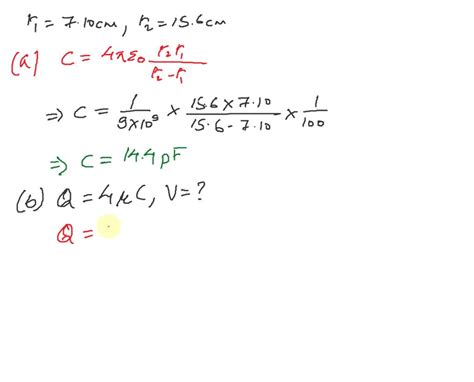 r₁ = 7.10cm, r₂ = 15.6cm
(a) C = 4πε₀ r₂r₁/(r₂ - r₁)
⇒ C = 1/(9×10⁹) × (15.6 × 7.10)/(15.6 - 7.10) × 1/100
⇒ C = 14.4pF
(b) Q = 4μC, V = ?
Q =